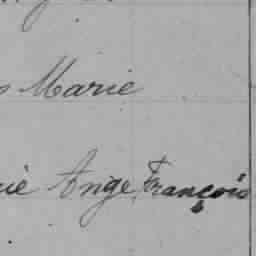 Marie
Ange François